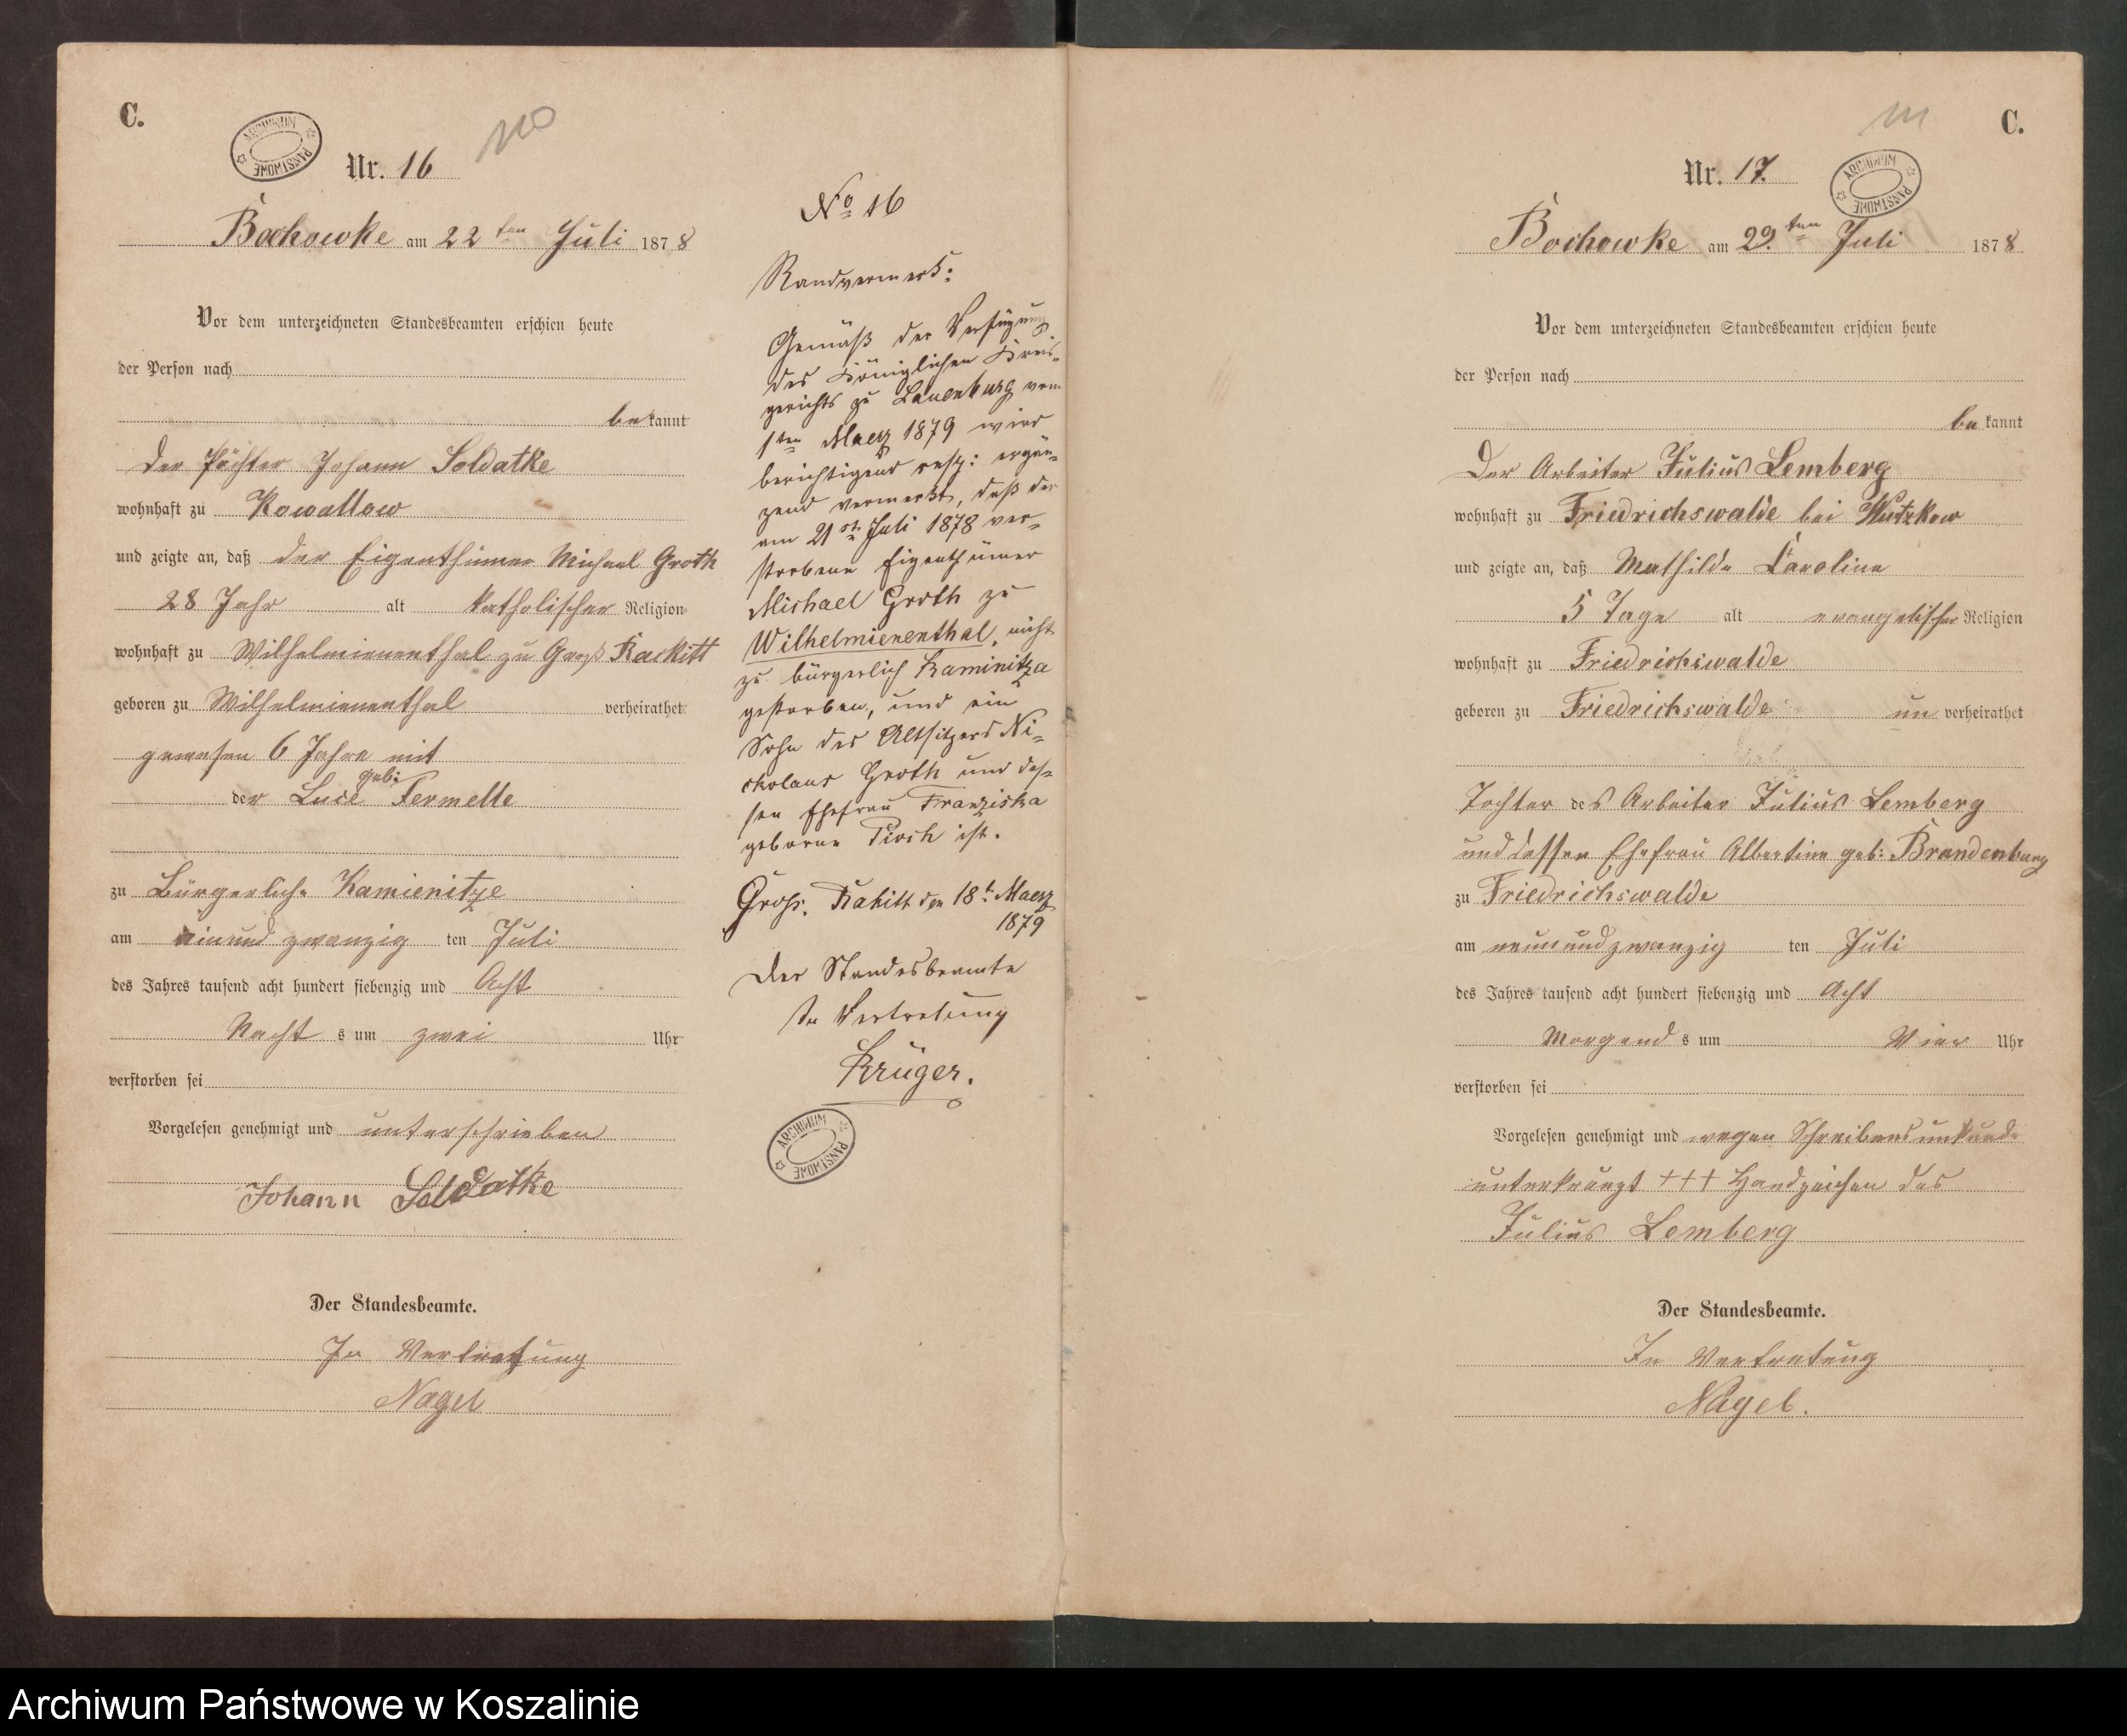 C.
ARCHIWUM PAŃSTWOWE
Nr. 16
110
Bochowke am 22ten Juli 1878
Vor dem unterzeichneten Standesbeamten erschien heute
der Person nach
bekannt
der Pächter Johann Soldatke
wohnhaft zu Kowallow
und zeigte an, daß der Eigenthümer Michael Groth
28 Jahr alt katholischer Religion
wohnhaft zu Wilhelmienenthal zu Groß Rackitt
geboren zu Wilhelmienenthal verheirathet
gewesen 6 Jahre mit
der Luise geb: Fermelle
zu Bürgerliche Kamienitze
am einund zwanzig ten Juli
des Jahres tausend acht hundert siebenzig und Acht
Nacht s um zwei Uhr
verstorben sei
Vorgelesen genehmigt und unterschrieben
Johann Soldatke
Der Standesbeamte.
In Vertretung
Nagel
No 16
Randvermerk:
Gemäß der Verfügung
des Königlichen Kreis-
gerichts zu Lauenburg vom
1ten Maerz 1879 wird
berichtigend resp: ergän-
zend vermerkt, daß der
am 21st Juli 1878 ver-
storbene Eigenthümer
Michael Groth zu
Wilhelmienenthal, nicht
zu bürgerlich Kaminitza
gestorben, und ein
Sohn des Altsitzers Ni-
ckolaus Groth und des-
sen Ehefrau Franziska
geborne Pioch ist.
Gross. Rakitt den 18t Maerz
1879
Der Standesbeamte
In Vertretung
Krüger.
ARCHIWUM PAŃSTWOWE
C.
111
Nr. 17.
ARCHIWUM PAŃSTWOWE
Bochowke am 29.ten Juli 1878
Vor dem unterzeichneten Standesbeamten erschien heute
der Person nach
bekannt
Der Arbeiter Julius Lemberg
wohnhaft zu Friedrichswalde bei Wutzkow
und zeigte an, daß Mathilde Caroline
5 Tage alt evangelischer Religion
wohnhaft zu Friedrichswalde
geboren zu Friedrichswalde un verheirathet
Tochter des Arbeiter Julius Lemberg
und dessen Ehefrau Albertine geb: Brandenburg
zu Friedrichswalde
am neun und zwanzig ten Juli
des Jahres tausend acht hundert siebenzig und Acht
Morgend s um Vier Uhr
verstorben sei
Vorgelesen genehmigt und wegen Schreibensunkunde
unterkreuzt +++ Handzeichen des
Julius Lemberg
Der Standesbeamte.
In Vertretung
Nagel.
Archiwum Państwowe w Koszalinie